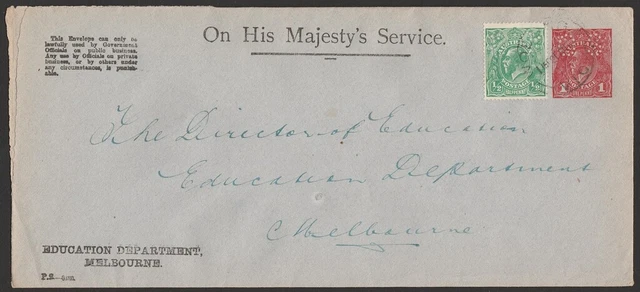 This Envelope can only be
lawfully used by Government
Officials on public business.
Any use by Officials on private
business, or by others under
any circumstances, is punish-
able.
On His Majesty's Service.
½ ½
1 1
The Director of Education
Education Department
Melbourne
EDUCATION DEPARTMENT,
MELBOURNE.